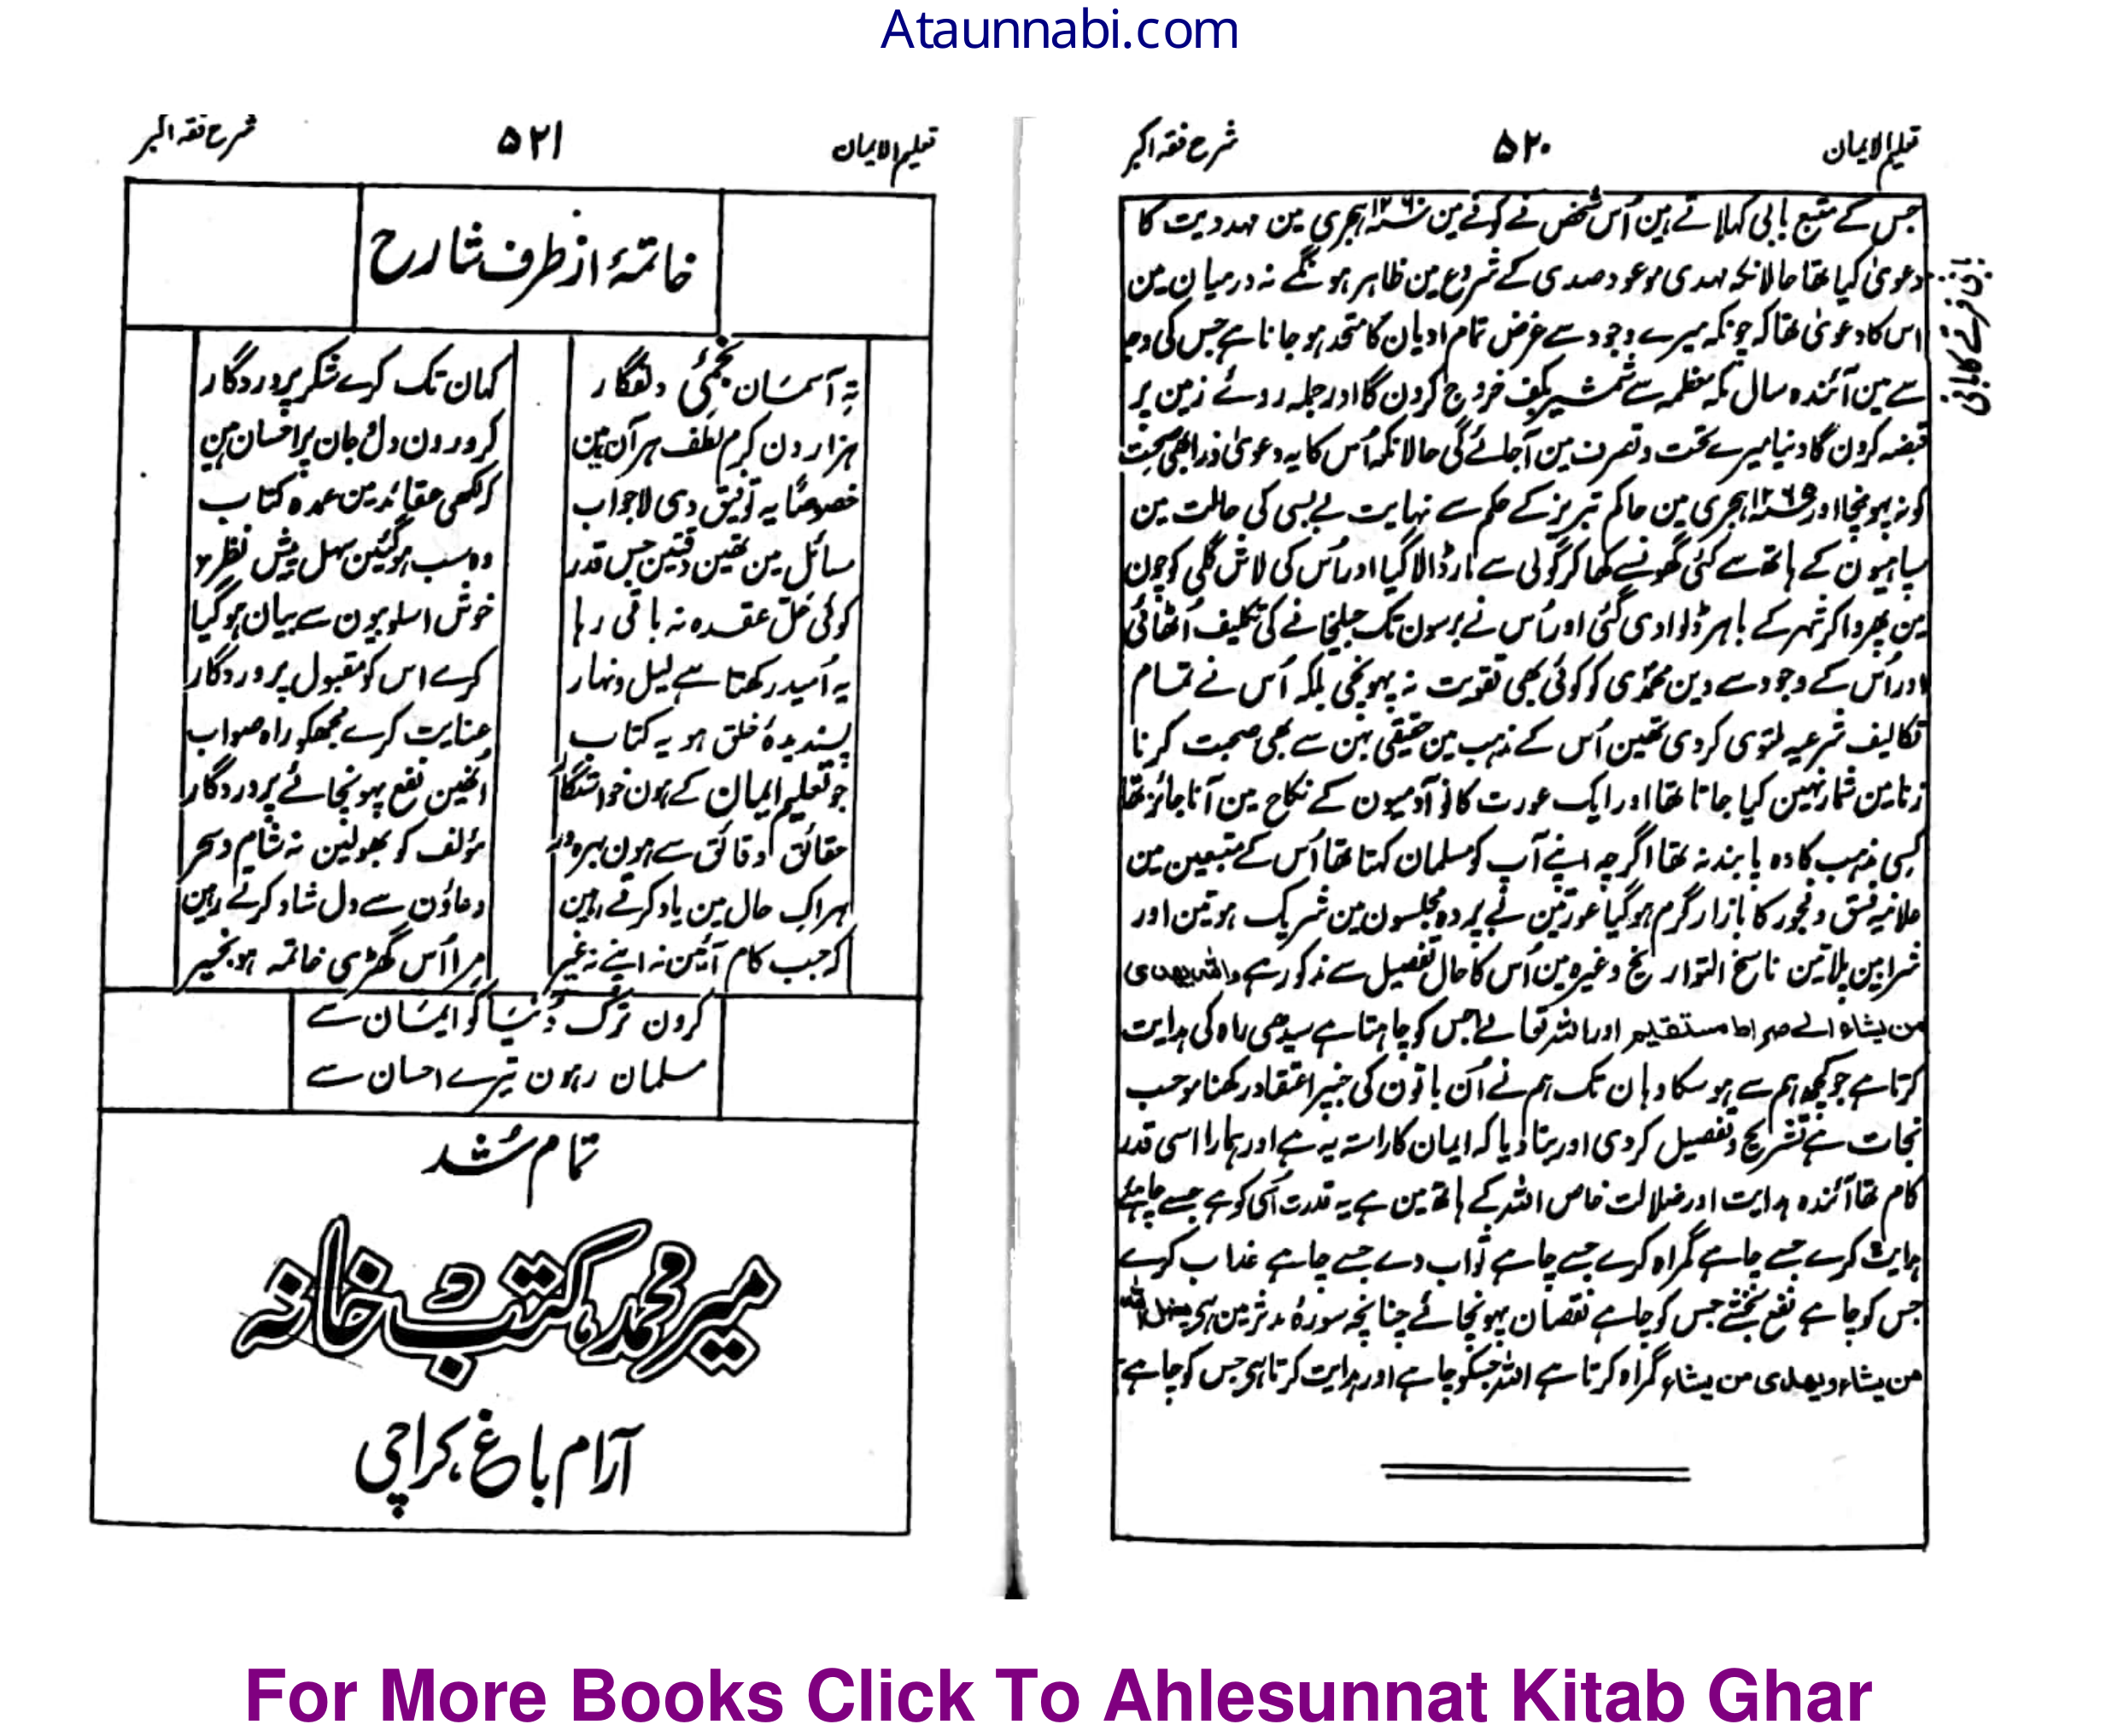 Ataunnabi.com
تعلیم الایمان ۵۲۰ شرح فقہ اکبر
جس کے متبع بابی کہلاتے ہین اُس شخص نے کوفے مین ۱۲۶۰؁ ہجری مین مہدویت کا
دعویٰ کیا تھا حالانکہ مہدی موعود صدی کے شروع مین ظاہر ہونگے نہ درمیان مین
اس کا دعویٰ تھا کہ چونکہ میرے وجود سے غرض تمام ادیان کا متحد ہو جانا ہے جس کی وجہ
سے مین آئندہ سال مکہ معظمہ سے شمشیر بکف خروج کرون گا اور جملہ روئے زمین پر
قبضہ کرون گا دنیا میرے تحت و تصرف مین آجائے گی حالانکہ اُس کا یہ دعویٰ ذرا بھی صحت
کو نہ پہونچا اور ۱۲۶۵؁ ہجری مین حاکم تبریز کے حکم سے نہایت بے بسی کی حالت مین
سپاہیون کے ہاتھ سے کئی گھونسے کھا کر گولی سے مار ڈالا گیا اور اُس کی لاش گلی کوچون
مین پھروا کر شہر کے باہر ڈلوا دی گئی اور اُس نے برسون تک جیلخانے کی تکلیف اُٹھائی
اور اُس کے وجود سے دین محمدؐی کو کوئی بھی تقویت نہ پہونچی بلکہ اُس نے تمام
تکالیف شرعیہ ملتوی کردی تھین اُس کے مذہب مین حقیقی بہن سے بھی صحبت کرنا
زنا مین شمار نہین کیا جاتا تھا اور ایک عورت کا نو آدمیون کے نکاح مین آنا جائز تھا
کسی مذہب کا وہ پابند نہ تھا اگرچہ اپنے آپ کو مسلمان کہتا تھا اُس کے متبعین مین
علانیہ فسق و فجور کا بازار گرم ہوگیا عورتین بے پردہ مجلسون مین شریک ہوتین اور
شرابین پلاتین ناسخ التواریخ وغیرہ مین اُس کا حال تفصیل سے مذکور ہے واللہ یھدی
من یشاء الے صراط مستقیم اور اللہ تعالےٰ جس کو چاہتا ہے سیدھی راہ کی ہدایت
کرتا ہے جو کچھ ہم سے ہو سکا وہان تک ہم نے اُن باتون کی جنپر اعتقاد رکھنا موجب
نجات ہے تشریح و تفصیل کردی اور بتا دیا کہ ایمان کا راستہ یہ ہے اور ہمارا اسی قدر
کام تھا آئندہ ہدایت اور ضلالت خاص اللہ کے ہاتھ مین ہے یہ قدرت اُسی کو ہے جسے چاہئے
ہدایت کرے جسے چاہے گمراہ کرے جسے چاہے ثواب دے جسے چاہے عذاب کرے
جس کو چاہے نفع بخشے جس کو چاہے نقصان پہونچائے چنانچہ سورۂ مدثر مین ہی یضل اللہ
من یشاء ویھدی من یشاء گمراہ کرتا ہے اللہ جسکو چاہے اور ہدایت کرتا ہی جس کو چاہے
تعلیم الایمان ۵۲۱ شرح فقہ اکبر
خاتمۂ از طرف شارح
تہِ آسمان نجمیٔ دلفگار کہان تک کرے شکر پروردگار
ہزارون کرم لطف ہر آن ہین کرورون دل و جان پر احسان ہین
خصوصًا یہ توفیق دی لاجواب کہ لکھی عقائد مین عمدہ کتاب
مسائل مین تھین دقتین جس قدر وہ سب ہوگئین سہل پیش نظر
کوئی حل عقدہ نہ باقی رہا خوش اسلوبیون سے بیان ہوگیا
یہ اُمید رکھتا ہے لیل و نہار کرے اس کو مقبول پروردگار
پسندیدۂ خلق ہو یہ کتاب عنایت کرے مجھکو راہ صواب
جو تعلیم ایمان کے ہون خواستگار اُنھین نفع پہونچائے پروردگار
حقائق دقائق سے ہون بہرہ ور مؤلف کو بھولین نہ شام و سحر
ہر اک حال مین یاد کرتے رہین دعاؤن سے دل شاد کرتے رہین
کہ جب کام آئین نہ اپنے نہ غیر مرا اُس گھڑی خاتمہ ہو بخیر
کرون ترک دُنیا کو ایمان سے
مسلمان رہون تیرے احسان سے
تمام شُد
میر محمد، کتب خانہ
آرام باغ، کراچی
For More Books Click To Ahlesunnat Kitab Ghar